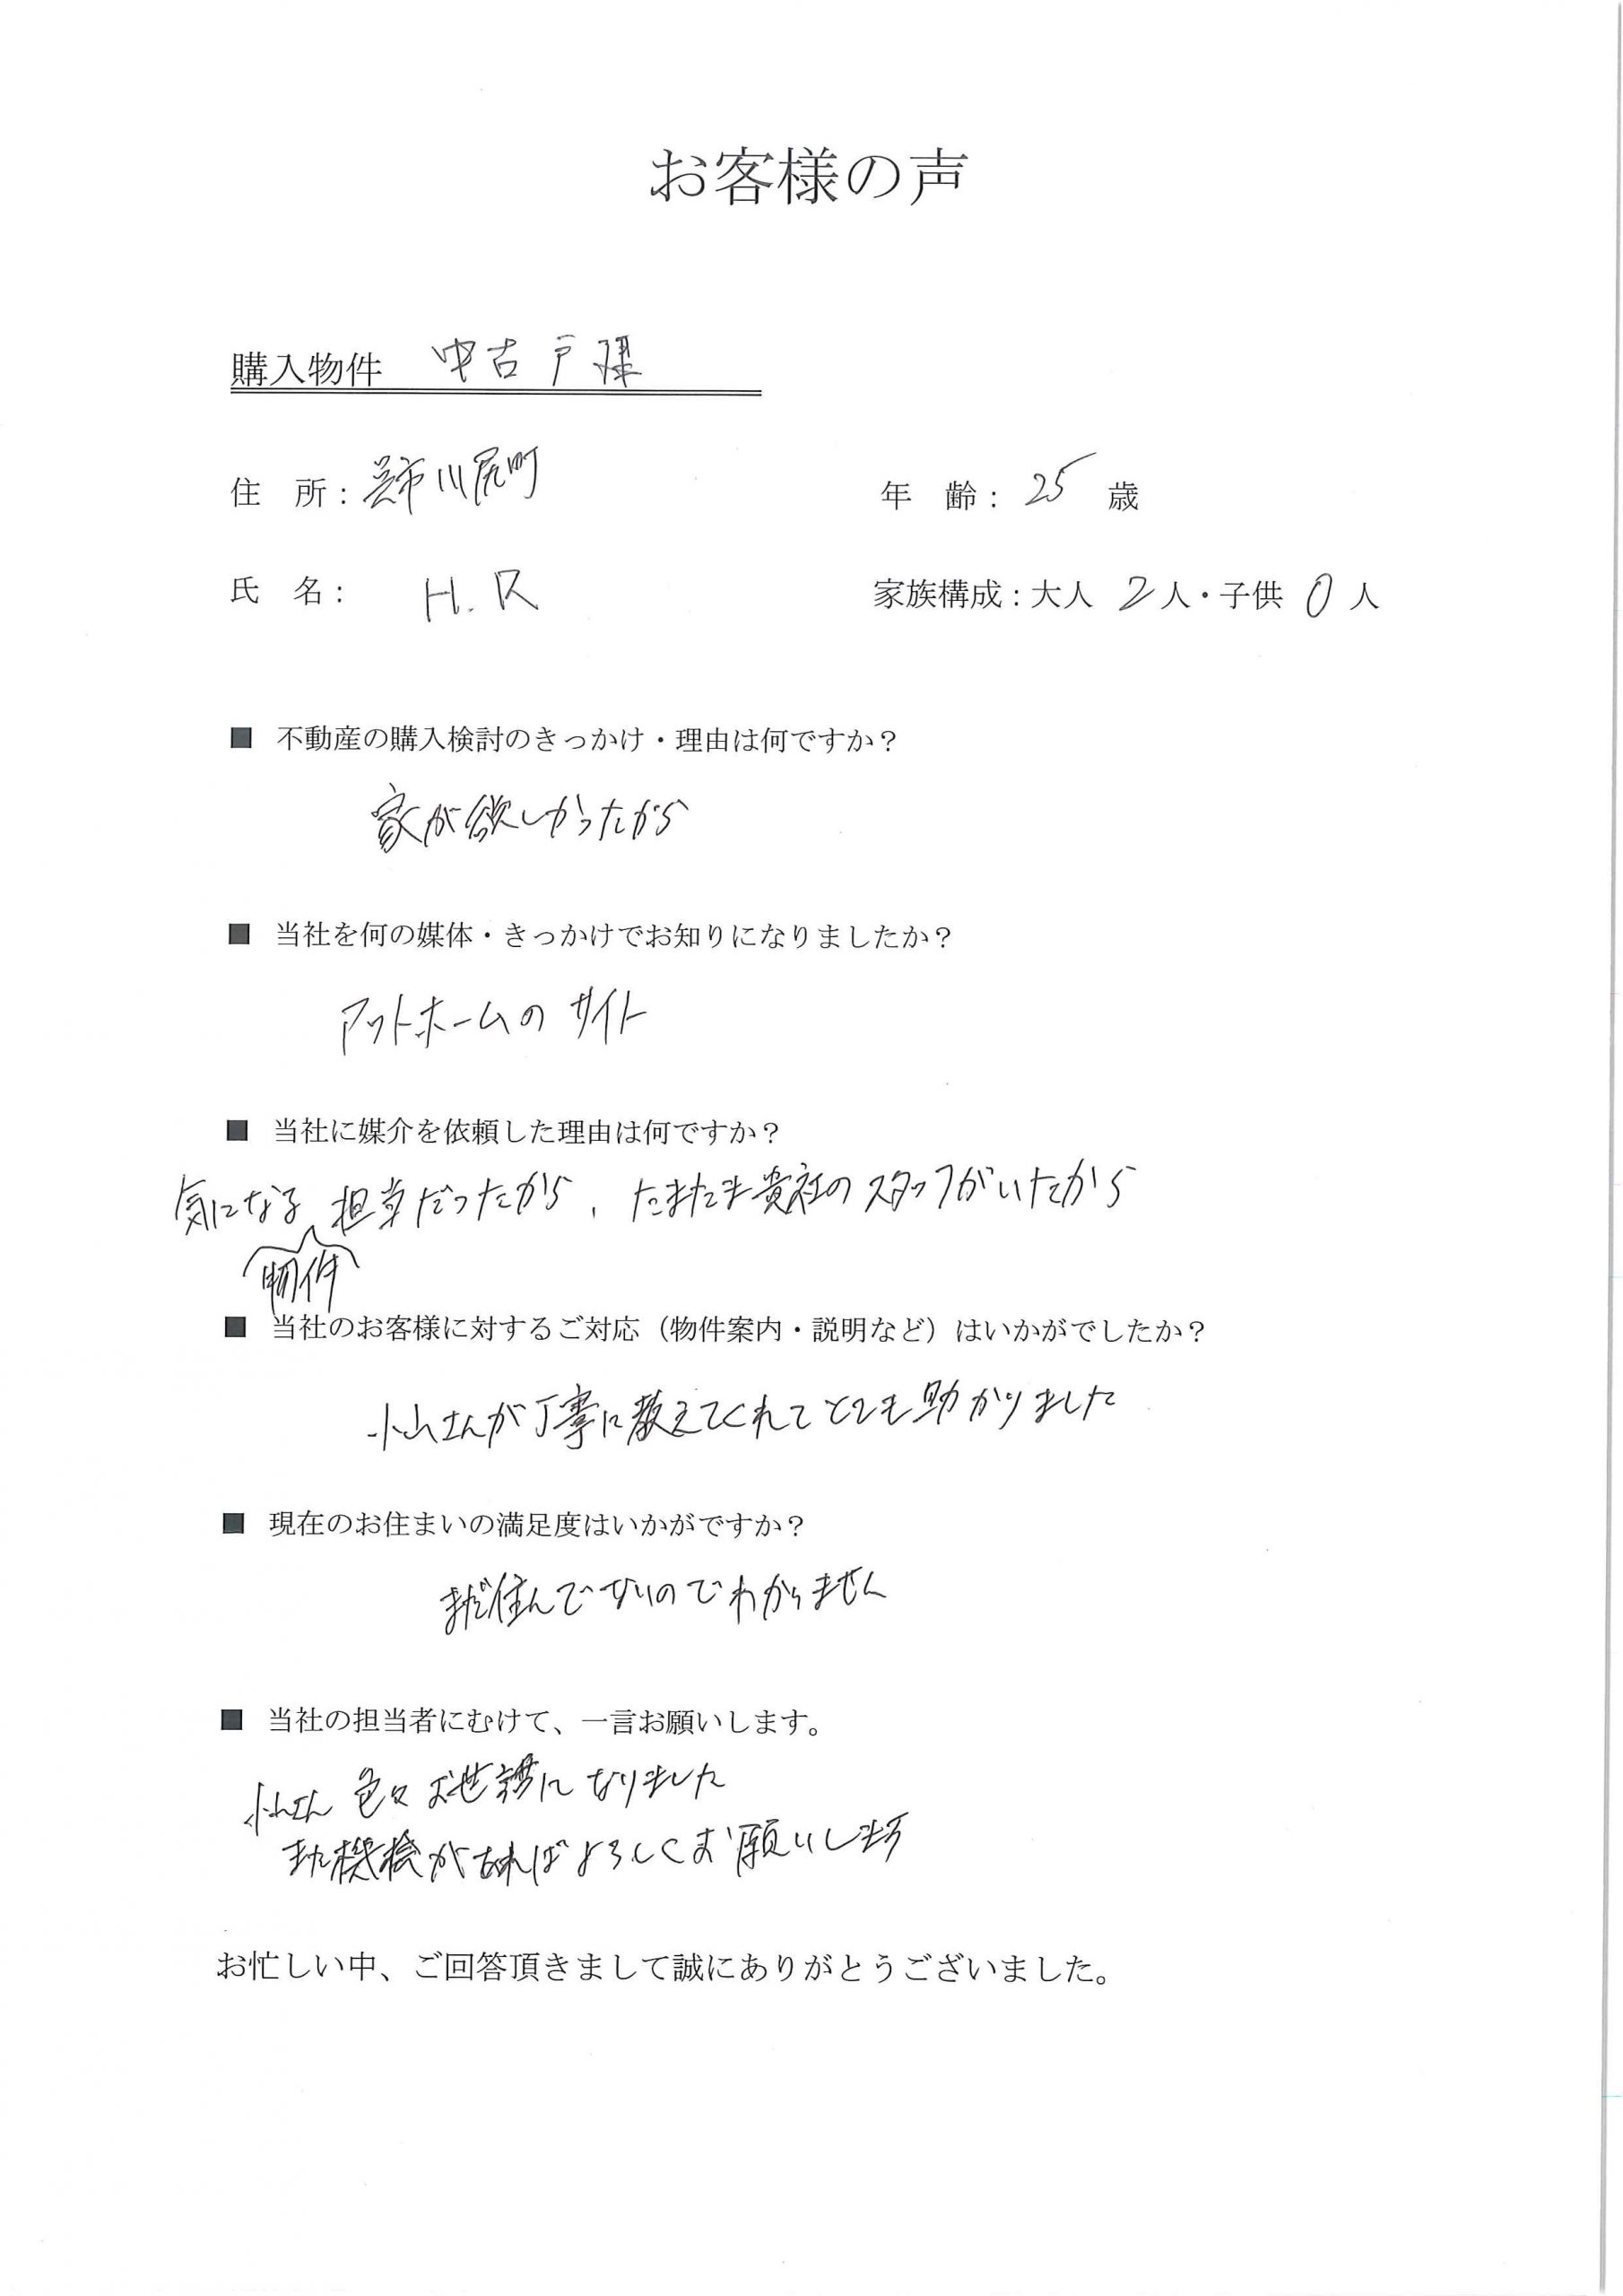 お客様の声
購入物件 中古戸建
住 所：呉市川尻町
年 齢：25 歳
氏 名： H.R
家族構成：大人 2人・子供 0人
■ 不動産の購入検討のきっかけ・理由は何ですか？
家が欲しかったから
■ 当社を何の媒体・きっかけでお知りになりましたか？
アットホームの サイト
■ 当社に媒介を依頼した理由は何ですか？
気になる 担当だったから、たまたま貴社のスタッフがいたから
物件
■ 当社のお客様に対するご対応（物件案内・説明など）はいかがでしたか？
小山さんが丁寧に教えてくれてとても助かりました
■ 現在のお住まいの満足度はいかがですか？
まだ住んでないのでわかりません
■ 当社の担当者にむけて、一言お願いします。
小山さん 色々お世話になりました
また機会があればよろしくお願いします
お忙しい中、ご回答頂きまして誠にありがとうございました。